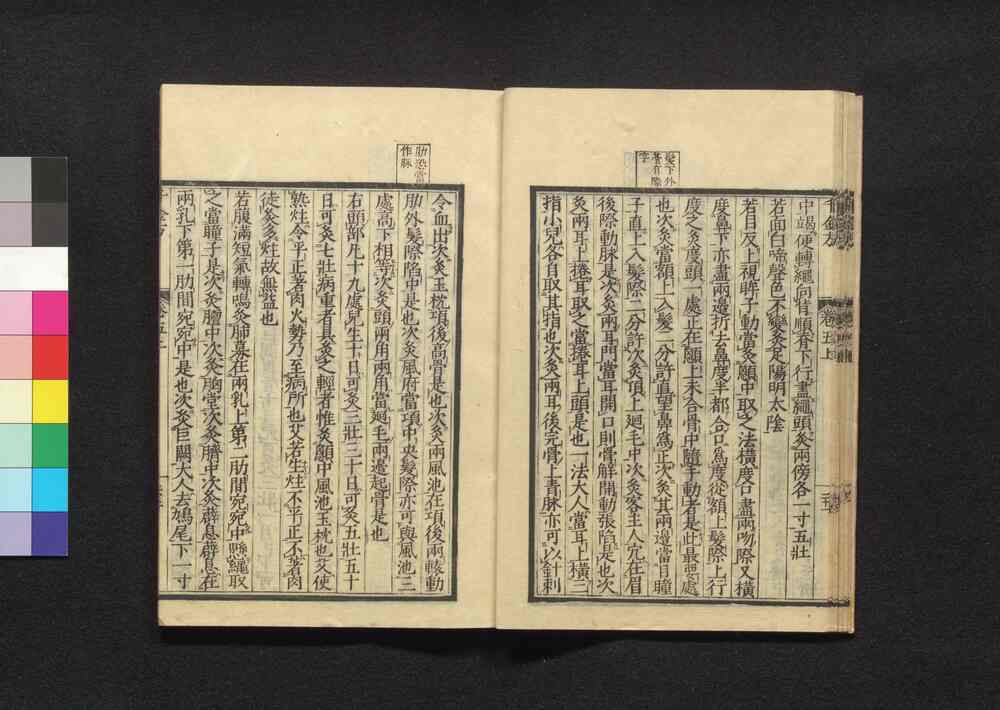 中竭便轉繩向背順脊下行盡繩頭灸兩傍各一寸五壯
若面白啼聲色不變灸足陽明太陰
若目反上視眸子動當灸顖中取之法橫度口盡兩吻際又橫
度鼻下亦盡兩邊折去鼻度半都合口爲度從額上髮際上行
度之灸度頭一處正在顖上未合骨中隨手動者是此最要處
也次灸當額上入髮二分許直望鼻爲正次灸其兩邊當目瞳
子直上入髮際二分許次灸頂上廻毛中次灸客主人穴在眉
後際動脉是次灸兩耳門當耳開口則骨解開動張陷是也次
灸兩耳上捲耳取之當捲耳上頭是也一法大人當耳上橫三
指小兒各自取其指也次灸兩耳後完骨上青脉亦可以針刺
髮下外
著有際
字
令血出次灸玉枕項後高骨是也次灸兩風池在項後兩轅動
肋外髮際陷中是也次灸風府當項中央髮際亦可與風池三
處高下相等次灸頭兩角兩角當廻毛兩邊起骨是也
右頭部凡十九處兒生十日可灸三壯三十日可灸五壯五十
日可灸七壯病重者具灸之輕者惟灸顖中風池玉枕也艾使
熟炷令平正著肉火勢乃至病所也艾若生炷不平正不著肉
徒灸多炷故無益也
若腹滿短氣轉鳴灸肺募在兩乳上第二肋間宛宛中懸繩取
之當瞳子是次灸膻中次灸胸堂次灸臍中次灸薜息薜息在
兩乳下第一肋間宛宛中是也次灸巨闕大人去鳩尾下一寸
肋恐當
作脉
卷五上